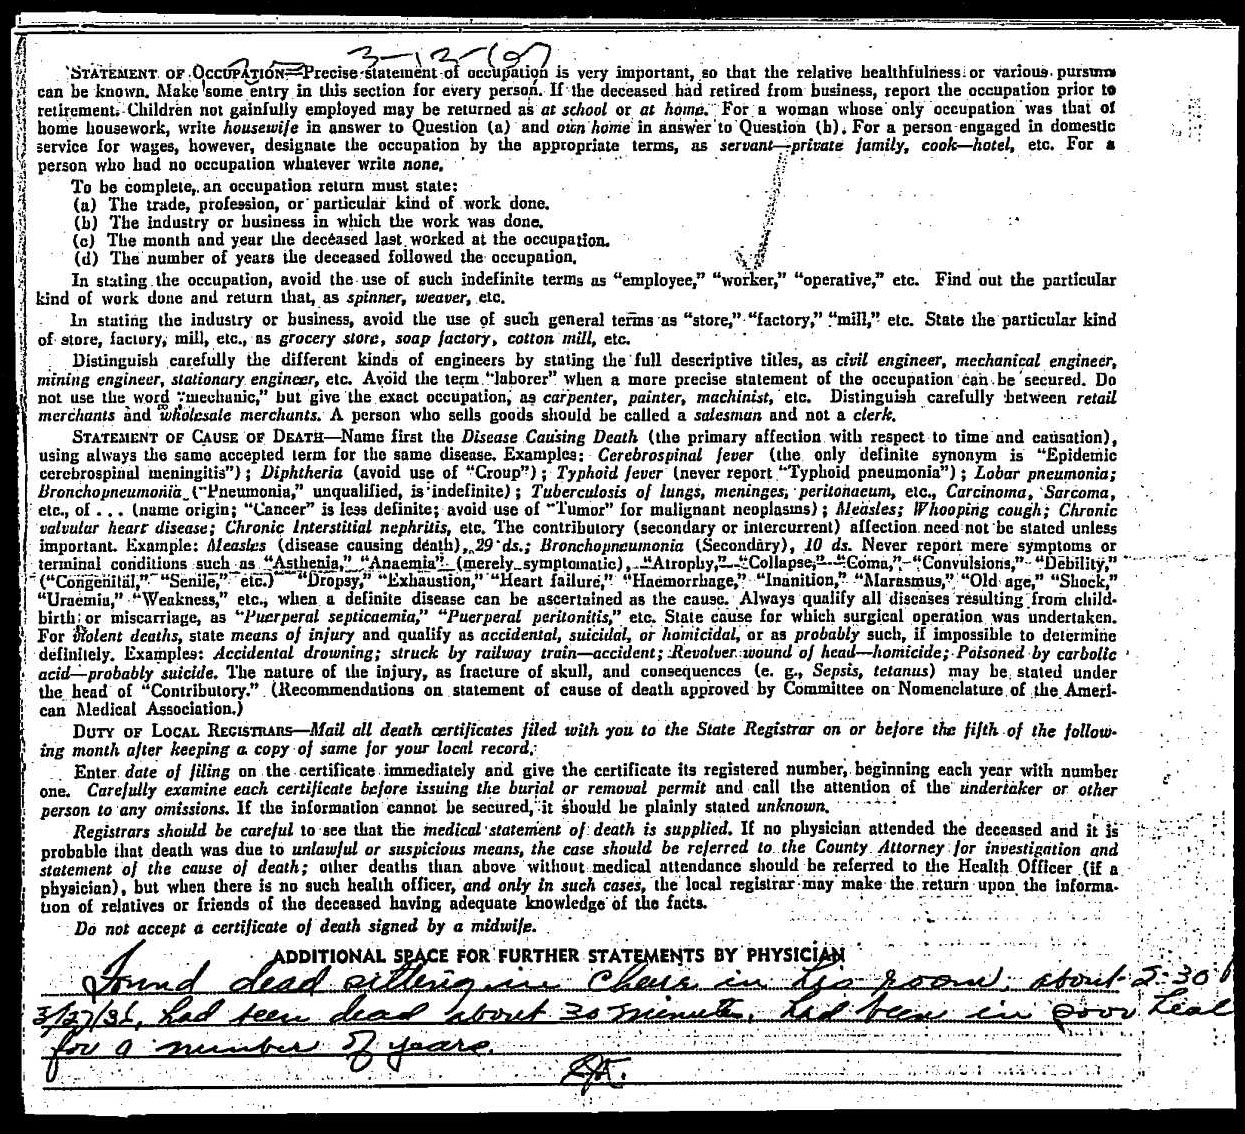 3-13-(0)
STATEMENT OF OCCUPATION—Precise statement of occupation is very important, so that the relative healthfulness or various pursuits
can be known. Make some entry in this section for every person. If the deceased had retired from business, report the occupation prior to
retirement. Children not gainfully employed may be returned as at school or at home. For a woman whose only occupation was that of
home housework, write housewife in answer to Question (a) and own home in answer to Question (b). For a person engaged in domestic
service for wages, however, designate the occupation by the appropriate terms, as servant—private family, cook—hotel, etc. For a
person who had no occupation whatever write none.
To be complete, an occupation return must state:
(a) The trade, profession, or particular kind of work done.
(b) The industry or business in which the work was done.
(c) The month and year the deceased last worked at the occupation.
(d) The number of years the deceased followed the occupation.
In stating the occupation, avoid the use of such indefinite terms as “employee,” “worker,” “operative,” etc. Find out the particular
kind of work done and return that, as spinner, weaver, etc.
In stating the industry or business, avoid the use of such general terms as “store,” “factory,” “mill,” etc. State the particular kind
of store, factory, mill, etc., as grocery store, soap factory, cotton mill, etc.
Distinguish carefully the different kinds of engineers by stating the full descriptive titles, as civil engineer, mechanical engineer,
mining engineer, stationary engineer, etc. Avoid the term “laborer” when a more precise statement of the occupation can be secured. Do
not use the word “mechanic,” but give the exact occupation, as carpenter, painter, machinist, etc. Distinguish carefully between retail
merchants and wholesale merchants. A person who sells goods should be called a salesman and not a clerk.
STATEMENT OF CAUSE OF DEATH—Name first the Disease Causing Death (the primary affection with respect to time and causation),
using always the same accepted term for the same disease. Examples: Cerebrospinal fever (the only definite synonym is “Epidemic
cerebrospinal meningitis”); Diphtheria (avoid use of “Croup”); Typhoid fever (never report “Typhoid pneumonia”); Lobar pneumonia;
Bronchopneumonia (“Pneumonia,” unqualified, is indefinite); Tuberculosis of lungs, meninges, peritonaeum, etc., Carcinoma, Sarcoma,
etc., of . . . (name origin; “Cancer” is less definite; avoid use of “Tumor” for malignant neoplasms); Measles; Whooping cough; Chronic
valvular heart disease; Chronic Interstitial nephritis, etc. The contributory (secondary or intercurrent) affection need not be stated unless
important. Example: Measles (disease causing death), 29 ds.; Bronchopneumonia (Secondary), 10 ds. Never report mere symptoms or
terminal conditions such as “Asthenia,” “Anaemia” (merely symptomatic), “Atrophy,” “Collapse,” “Coma,” “Convulsions,” “Debility,”
(“Congenital,” “Senile,” etc.) “Dropsy,” “Exhaustion,” “Heart failure,” “Haemorrhage,” “Inanition,” “Marasmus,” “Old age,” “Shock,”
“Uraemia,” “Weakness,” etc., when a definite disease can be ascertained as the cause. Always qualify all diseases resulting from child-
birth or miscarriage, as “Puerperal septicaemia,” “Puerperal peritonitis,” etc. State cause for which surgical operation was undertaken.
For violent deaths, state means of injury and qualify as accidental, suicidal, or homicidal, or as probably such, if impossible to determine
definitely. Examples: Accidental drowning; struck by railway train—accident; Revolver wound of head—homicide; Poisoned by carbolic
acid—probably suicide. The nature of the injury, as fracture of skull, and consequences (e. g., Sepsis, tetanus) may be stated under
the head of “Contributory.” (Recommendations on statement of cause of death approved by Committee on Nomenclature of the Ameri-
can Medical Association.)
DUTY OF LOCAL REGISTRARS—Mail all death certificates filed with you to the State Registrar on or before the fifth of the follow-
ing month after keeping a copy of same for your local record.
Enter date of filing on the certificate immediately and give the certificate its registered number, beginning each year with number
one. Carefully examine each certificate before issuing the burial or removal permit and call the attention of the undertaker or other
person to any omissions. If the information cannot be secured, it should be plainly stated unknown.
Registrars should be careful to see that the medical statement of death is supplied. If no physician attended the deceased and it is
probable that death was due to unlawful or suspicious means, the case should be referred to the County Attorney for investigation and
statement of the cause of death; other deaths than above without medical attendance should be referred to the Health Officer (if a
physician), but when there is no such health officer, and only in such cases, the local registrar may make the return upon the informa-
tion of relatives or friends of the deceased having adequate knowledge of the facts.
Do not accept a certificate of death signed by a midwife.
ADDITIONAL SPACE FOR FURTHER STATEMENTS BY PHYSICIAN
Found dead sitting in chair in his room, about 2:30 P
had been dead about 30 minutes, had been in poor heal
for a number of years.